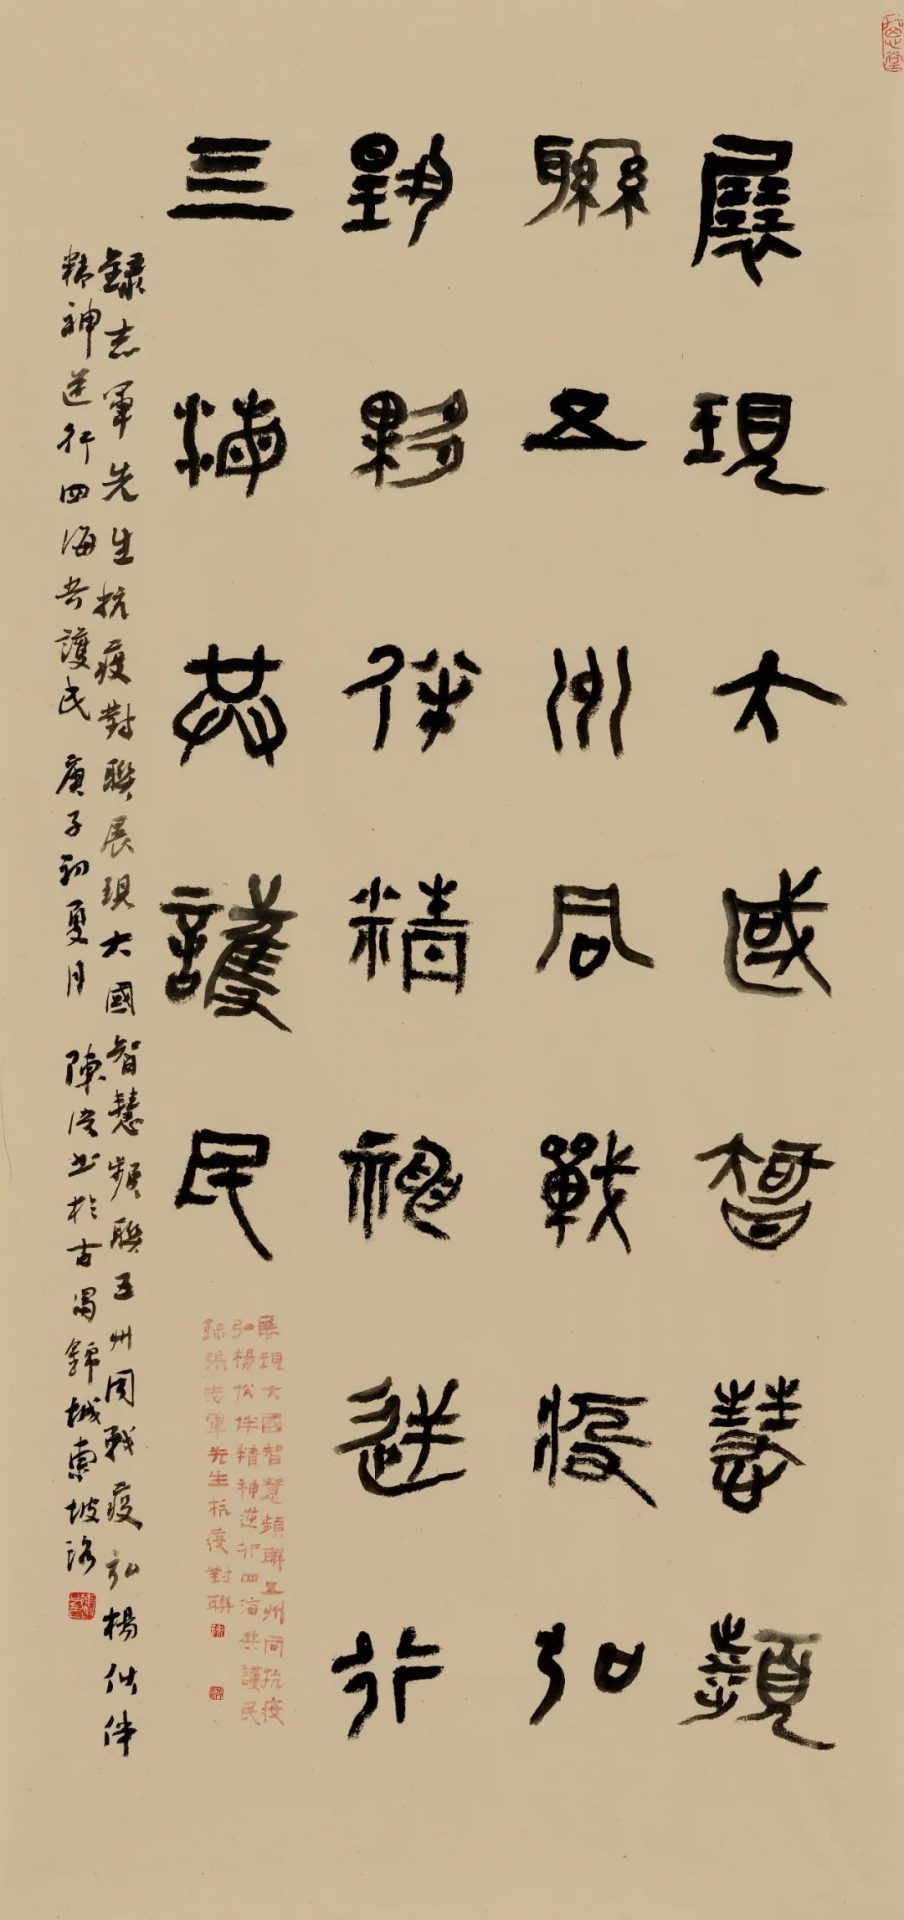 展現大國智慧頻
聯五州同戰疫弘
揚夥伴精神逆行
四海共護民
錄志軍先生抗疫對聯展現大國智慧頻聯五州同戰疫弘楊伙伴
精神逆行四海共護民 庚子初夏月 陳書於古蜀錦城東坡路
展現大國智慧頻聯五州同抗疫
弘楊伙伴精神逆行四海共護民
錄張志軍先生抗疫對聯